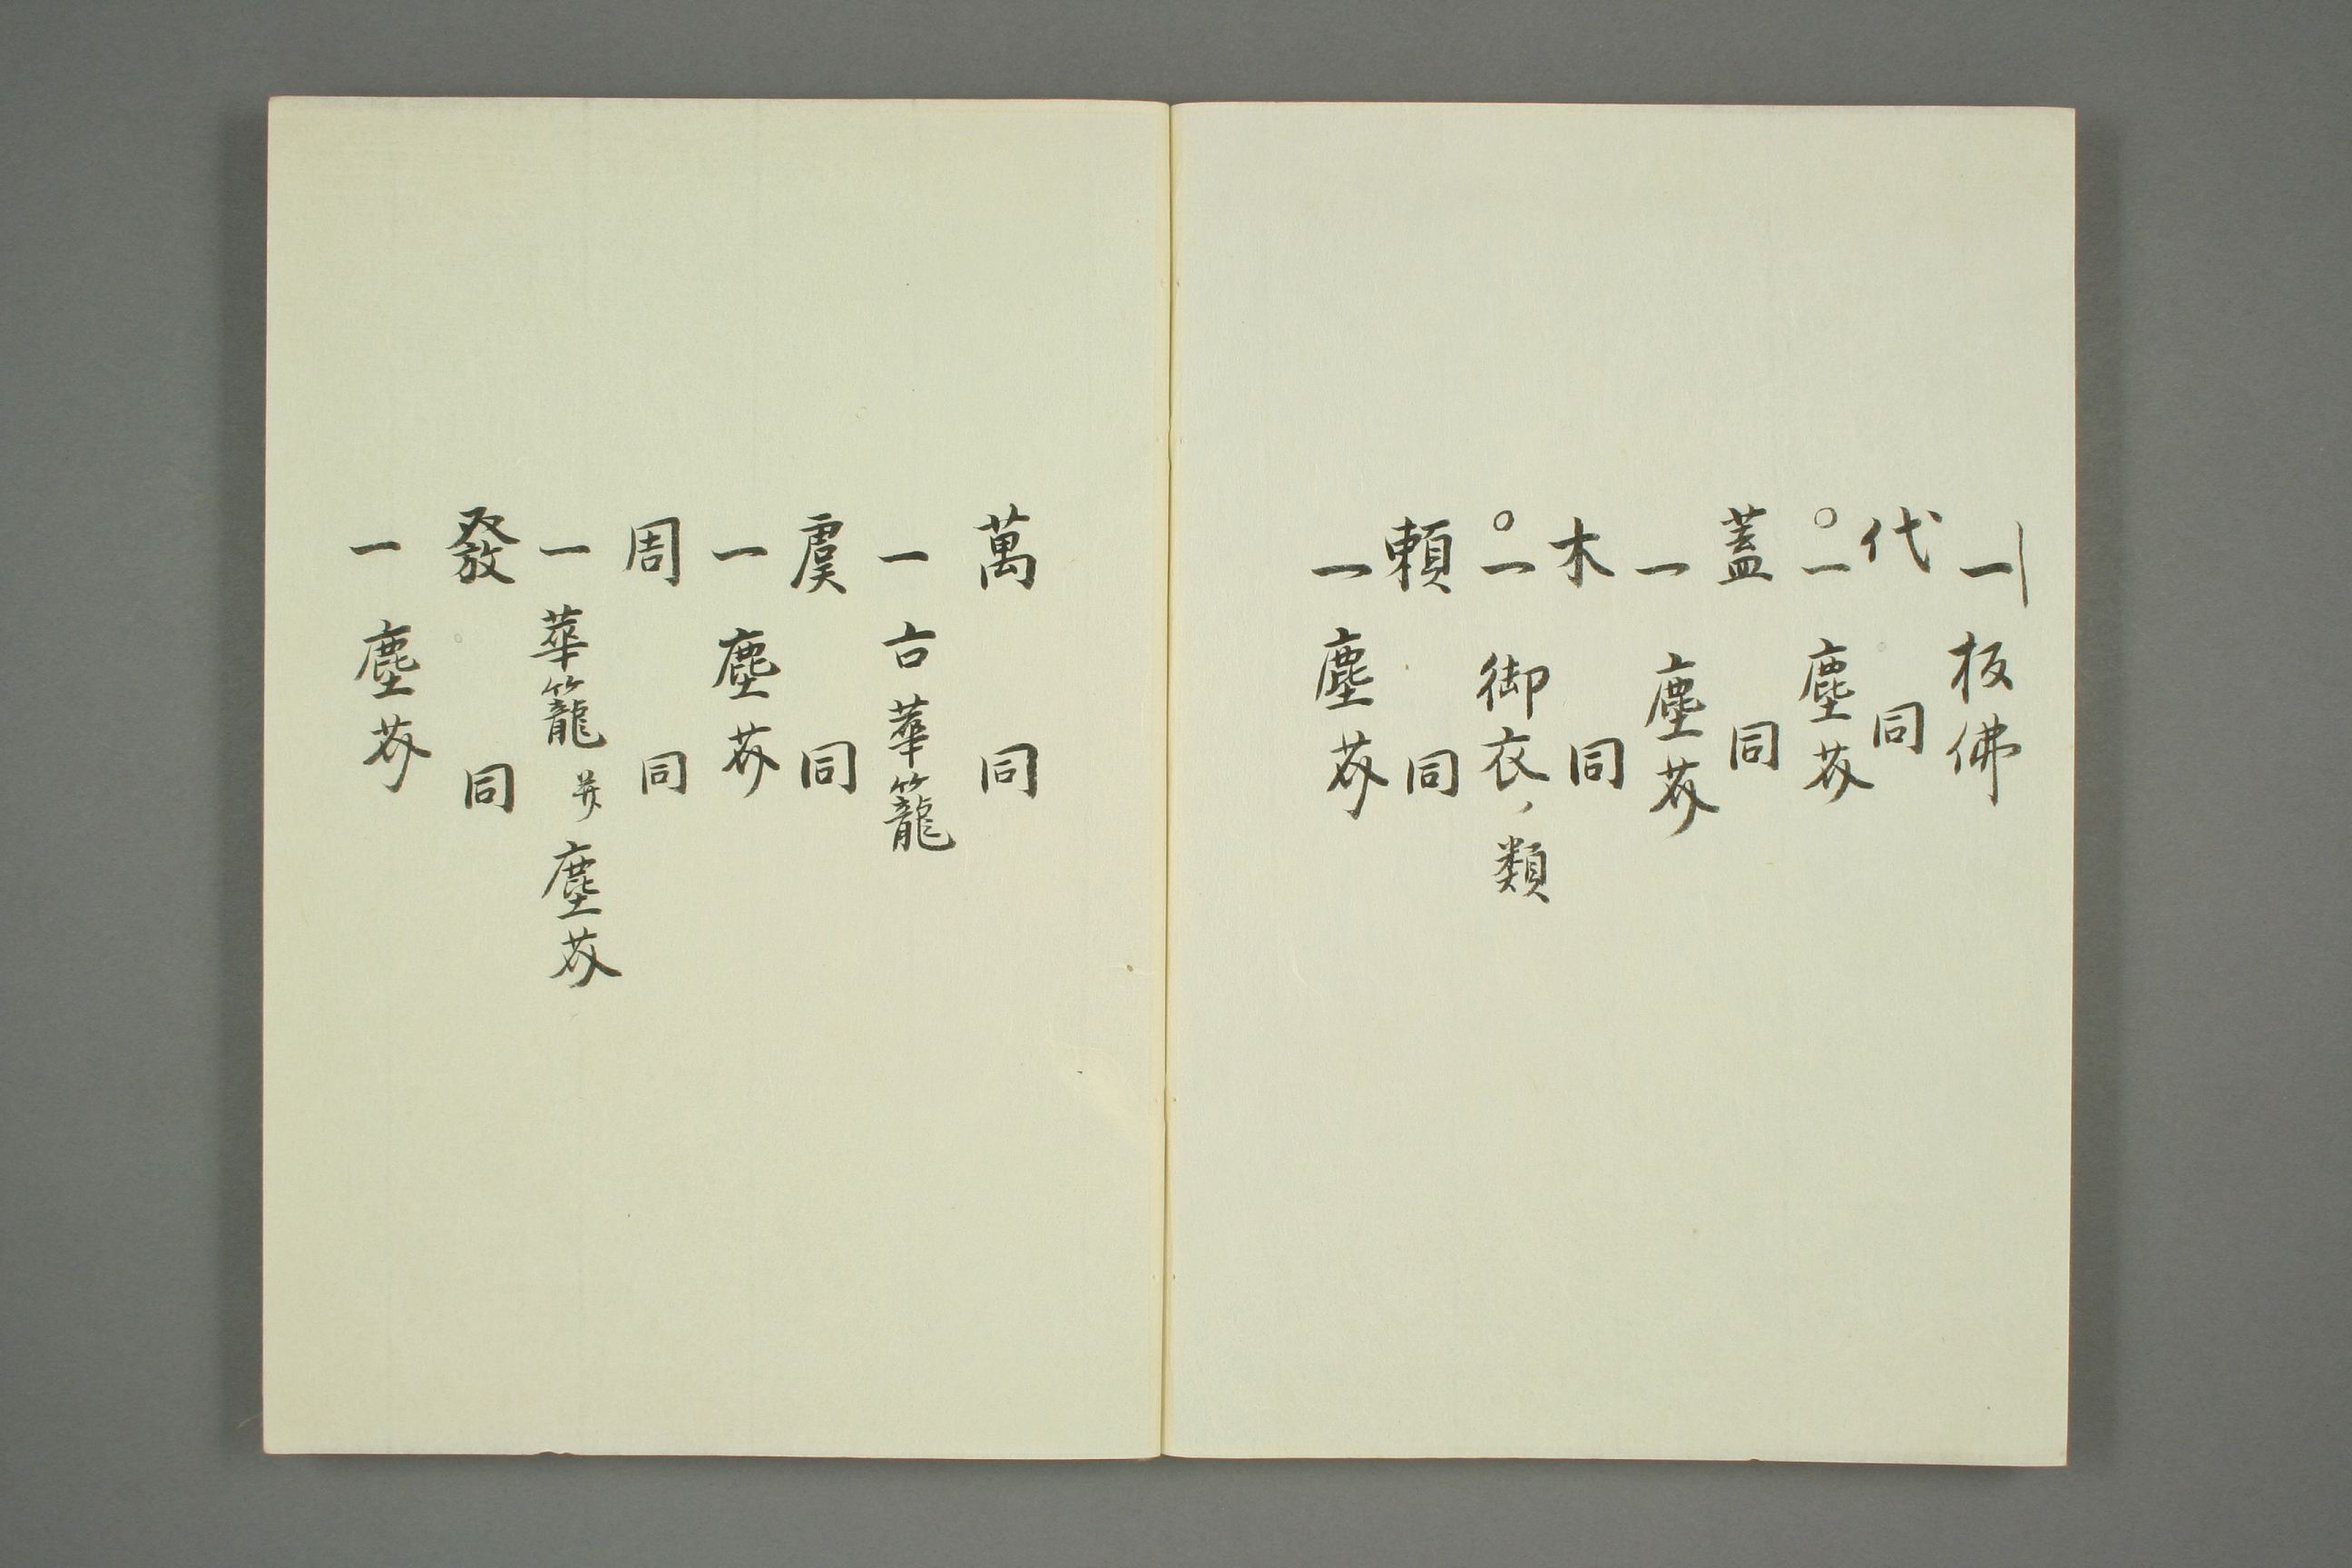 一 板佛
代 同
○一 塵芥
蓋 同
一 塵芥
木 同
○一 御衣ノ類
頼 同
一 塵芥
萬 同
一 古華籠
虞 同
一 塵芥
周 同
一 華籠 并 塵芥
發 同
一 塵芥